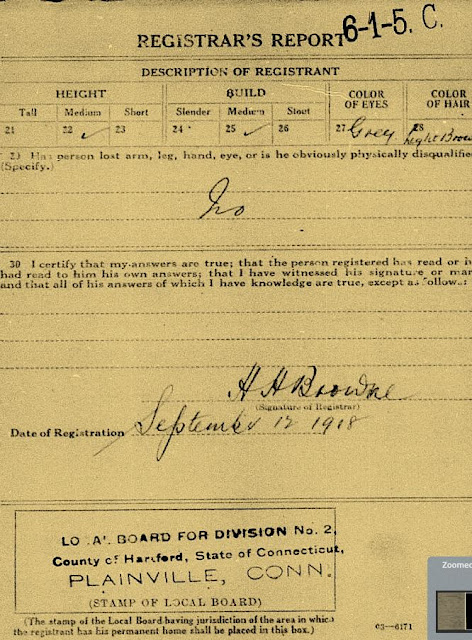 6-1-5. C.
REGISTRAR'S REPORT
DESCRIPTION OF REGISTRANT
HEIGHT BUILD COLOR OF EYES COLOR OF HAIR
Tall Medium Short Slender Medium Stout
21 22 ✓ 23 24 25 ✓ 26 27 Grey 28 Light Brow
29 Has person lost arm, leg, hand, eye, or is he obviously physically disqualifie
(Specify.)
No
30 I certify that my answers are true; that the person registered has read or h
had read to him his own answers; that I have witnessed his signature or mar
and that all of his answers of which I have knowledge are true, except as follow.:
H H Browne
(Signature of Registrar)
Date of Registration September 12 1918
LO AL BOARD FOR DIVISION No. 2,
County of Hartford, State of Connecticut,
PLAINVILLE, CONN.
(STAMP OF LOCAL BOARD)
(The stamp of the Local Board having jurisdiction of the area in which
the registrant has his permanent home shall be placed in this box.) 03-6171
Zoomed